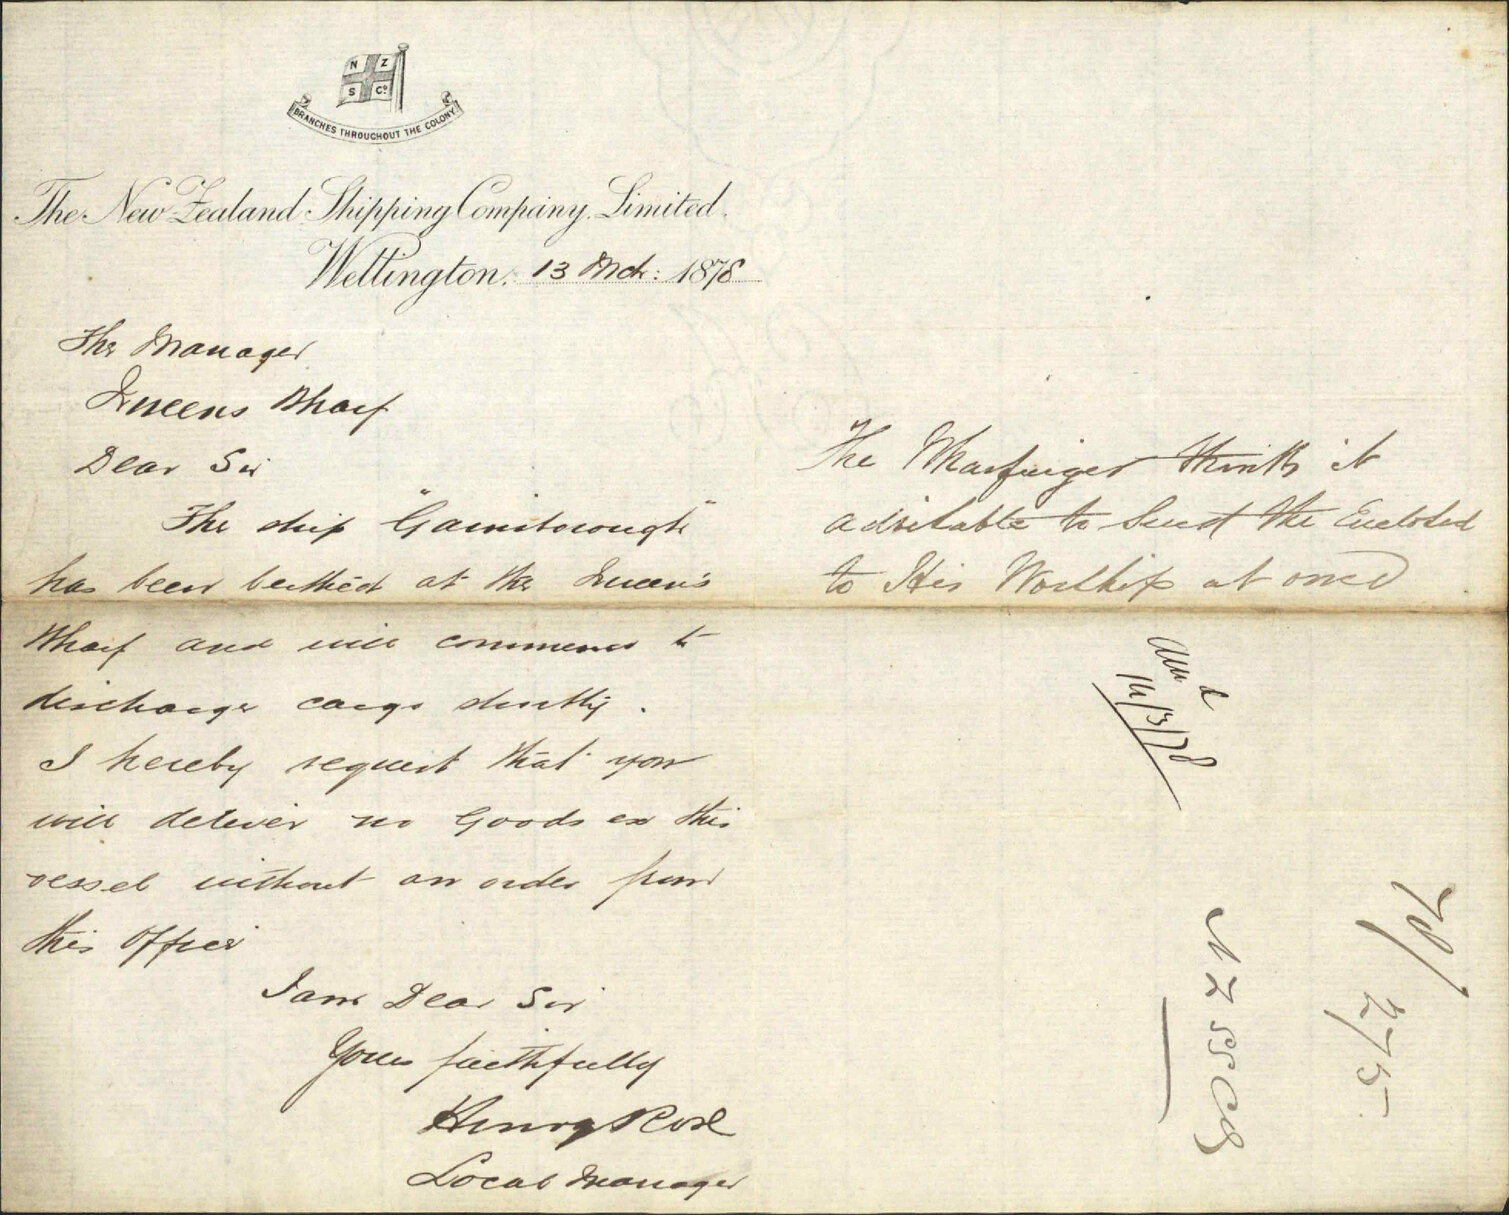 N Z
S Co
BRANCHES THROUGHOUT THE COLONY
The New Zealand Shipping Company Limited.
Wellington. 13 Mch: 1878
The Manager
Queens Wharf
Dear Sir
The ship "Gainsborough"
has been berthed at the Queen's
Wharf and will commence to
discharge cargo shortly.
I hereby request that you
will deliver no Goods ex this
vessel without an order from
this Office
I am Dear Sir
Yours faithfully
Henry Rose
Local Manager
The Wharfinger thinks it
advisable to send the Enclosed
to His Worship at once
14/3/78
N Z S S Co
78/275